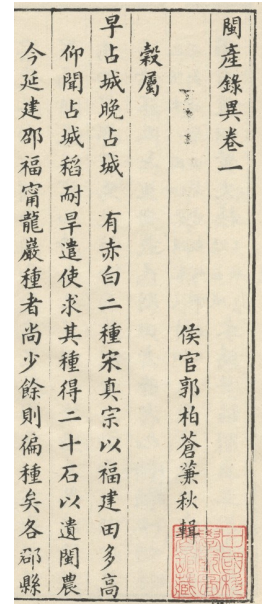 閩產錄異卷一
侯官郭柏蒼蒹秋輯
穀屬
早占城晚占城 有赤白二種宋真宗以福建田多高
仰聞占城稻耐旱遣使求其種得二十石以遺閩農
今延建邵福甯龍巖種者尚少餘則徧種矣各郡縣